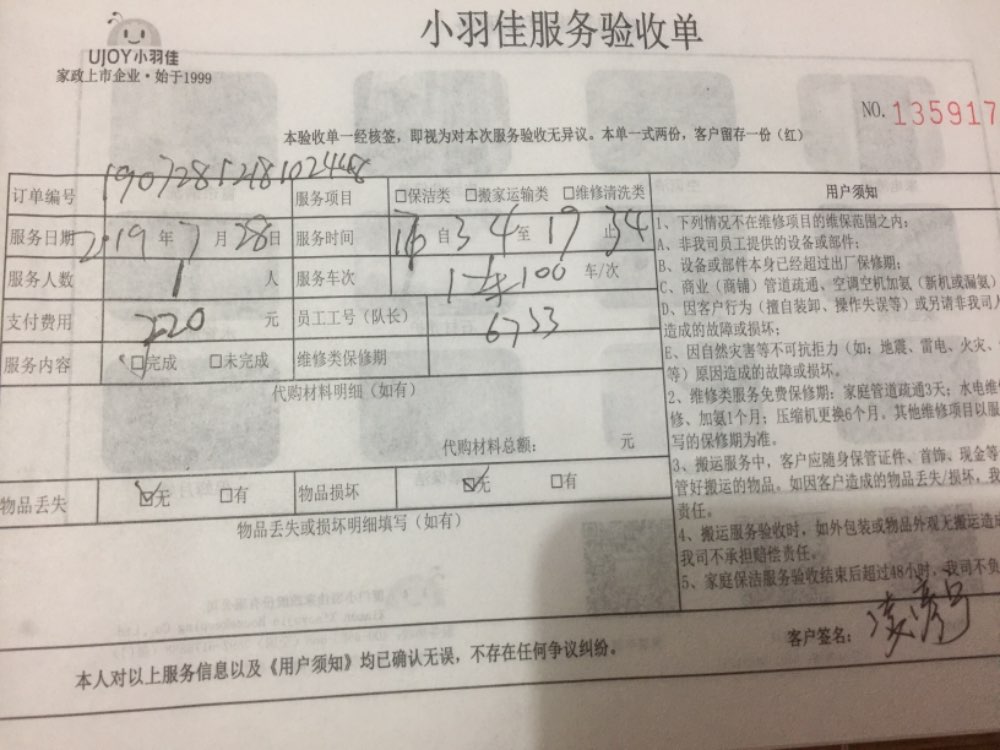 UJOY小羽佳
家政上市企业·始于1999
小羽佳服务验收单
NO. 135917
本验收单一经核签，即视为对本次服务验收无异议。本单一式两份，客户留存一份（红）
订单编号 服务项目 □保洁类 □搬家运输类 □维修清洗类
服务日期 2019年7月28日 服务时间 自 至 止
服务人数 1 人 服务车次 车/次
支付费用 220 元 员工工号（队长） 6733
服务内容 □完成 □未完成 维修类保修期
代购材料明细（如有）
代购材料总额： 元
物品丢失 ☑无 □有 物品损坏 ☑无 □有
物品丢失或损坏明细填写（如有）
用户须知
1、下列情况不在维修项目的维保范围之内：
A、非我司员工提供的设备或部件；
B、设备或部件本身已经超过出厂保修期；
C、商业（商铺）管道疏通、空调空机加氨（新机或漏氨）
D、因客户行为（擅自装卸、操作失误等）或另请非我司
造成的故障或损坏；
E、因自然灾害等不可抗拒力（如：地震、雷电、火灾、
等）原因造成的故障或损坏。
2、维修类服务免费保修期：家庭管道疏通3天；水电维
修、加氨1个月；压缩机更换6个月。其他维修项目以服
写的保修期为准。
3、搬运服务中，客户应随身保管证件、首饰、现金等
管好搬运的物品。如因客户造成的物品丢失/损坏，我
责任。
4、搬运服务验收时，如外包装或物品外观无搬运造
我司不承担赔偿责任。
5、家庭保洁服务验收结束后超过48小时，我司不负
客户签名：
本人对以上服务信息以及《用户须知》均已确认无误，不存在任何争议纠纷。